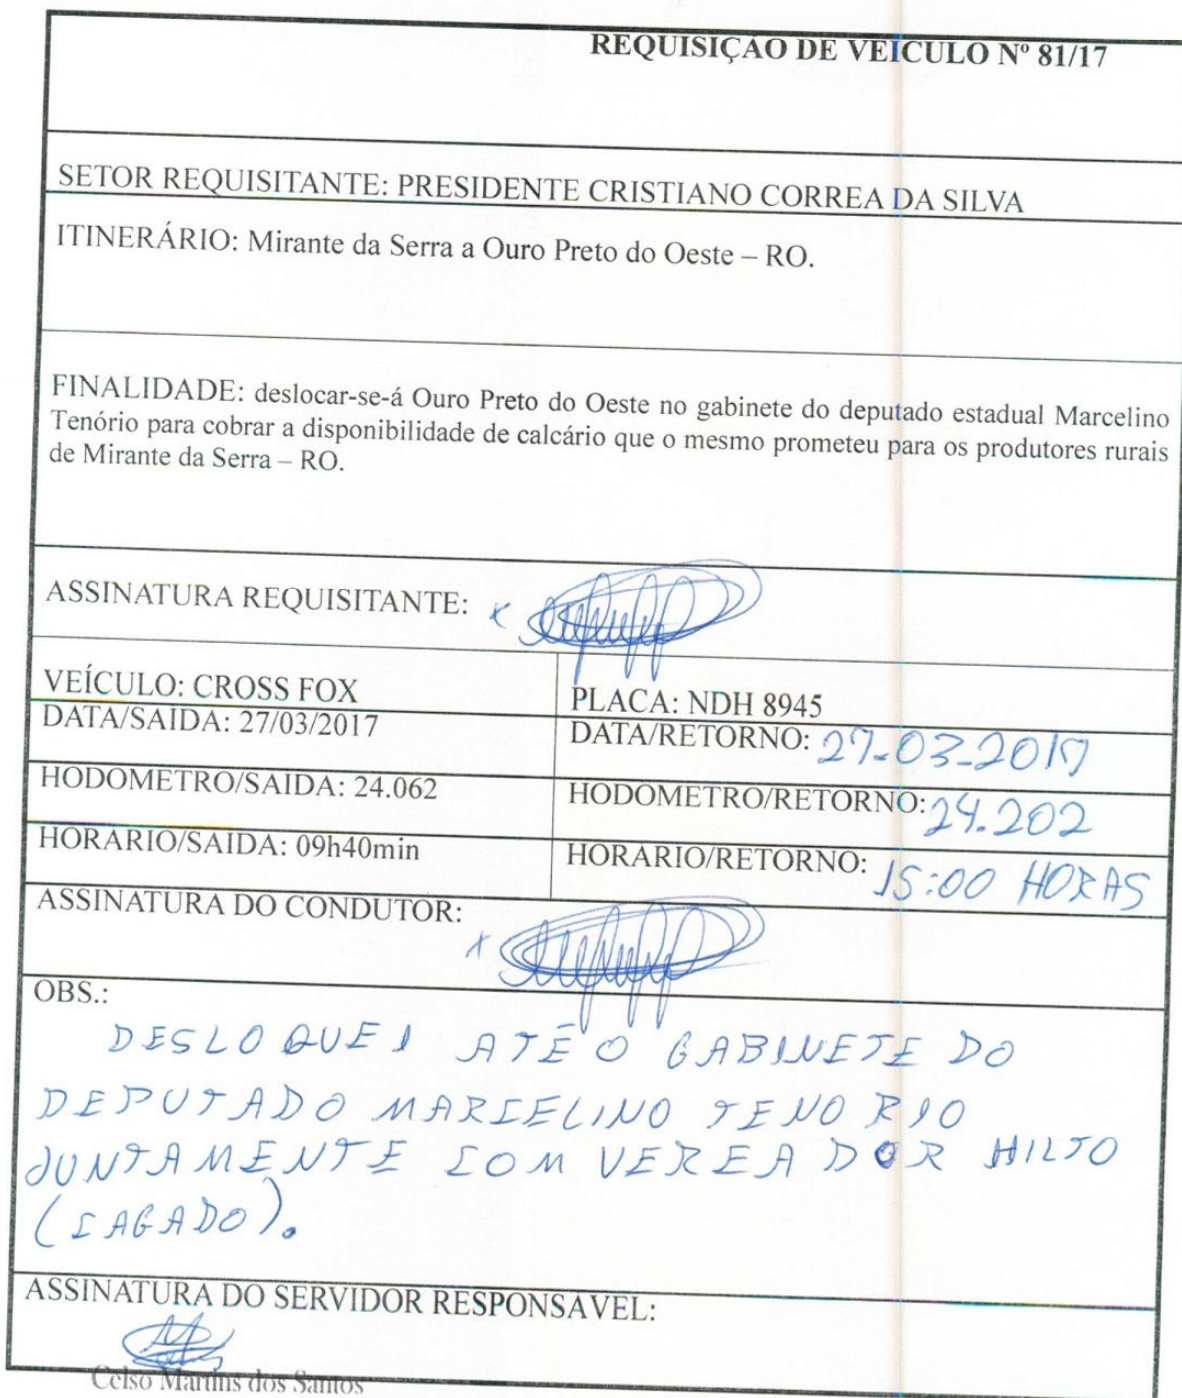 REQUISIÇÃO DE VEÍCULO Nº 81/17
SETOR REQUISITANTE: PRESIDENTE CRISTIANO CORREA DA SILVA
ITINERÁRIO: Mirante da Serra a Ouro Preto do Oeste – RO.
FINALIDADE: deslocar-se-á Ouro Preto do Oeste no gabinete do deputado estadual Marcelino
Tenório para cobrar a disponibilidade de calcário que o mesmo prometeu para os produtores rurais
de Mirante da Serra – RO.
ASSINATURA REQUISITANTE: x
VEÍCULO: CROSS FOX PLACA: NDH 8945
DATA/SAIDA: 27/03/2017 DATA/RETORNO: 27-03-2017
HODOMETRO/SAIDA: 24.062 HODOMETRO/RETORNO: 24.202
HORARIO/SAIDA: 09h40min HORARIO/RETORNO: 15:00 HORAS
ASSINATURA DO CONDUTOR: x
OBS.:
DESLOQUEI ATÉ O GABINETE DO
DEPUTADO MARCELINO TENORIO
JUNTAMENTE COM VEREADOR HILTO
(CAGADO).
ASSINATURA DO SERVIDOR RESPONSAVEL:
Celso Martins dos Santos